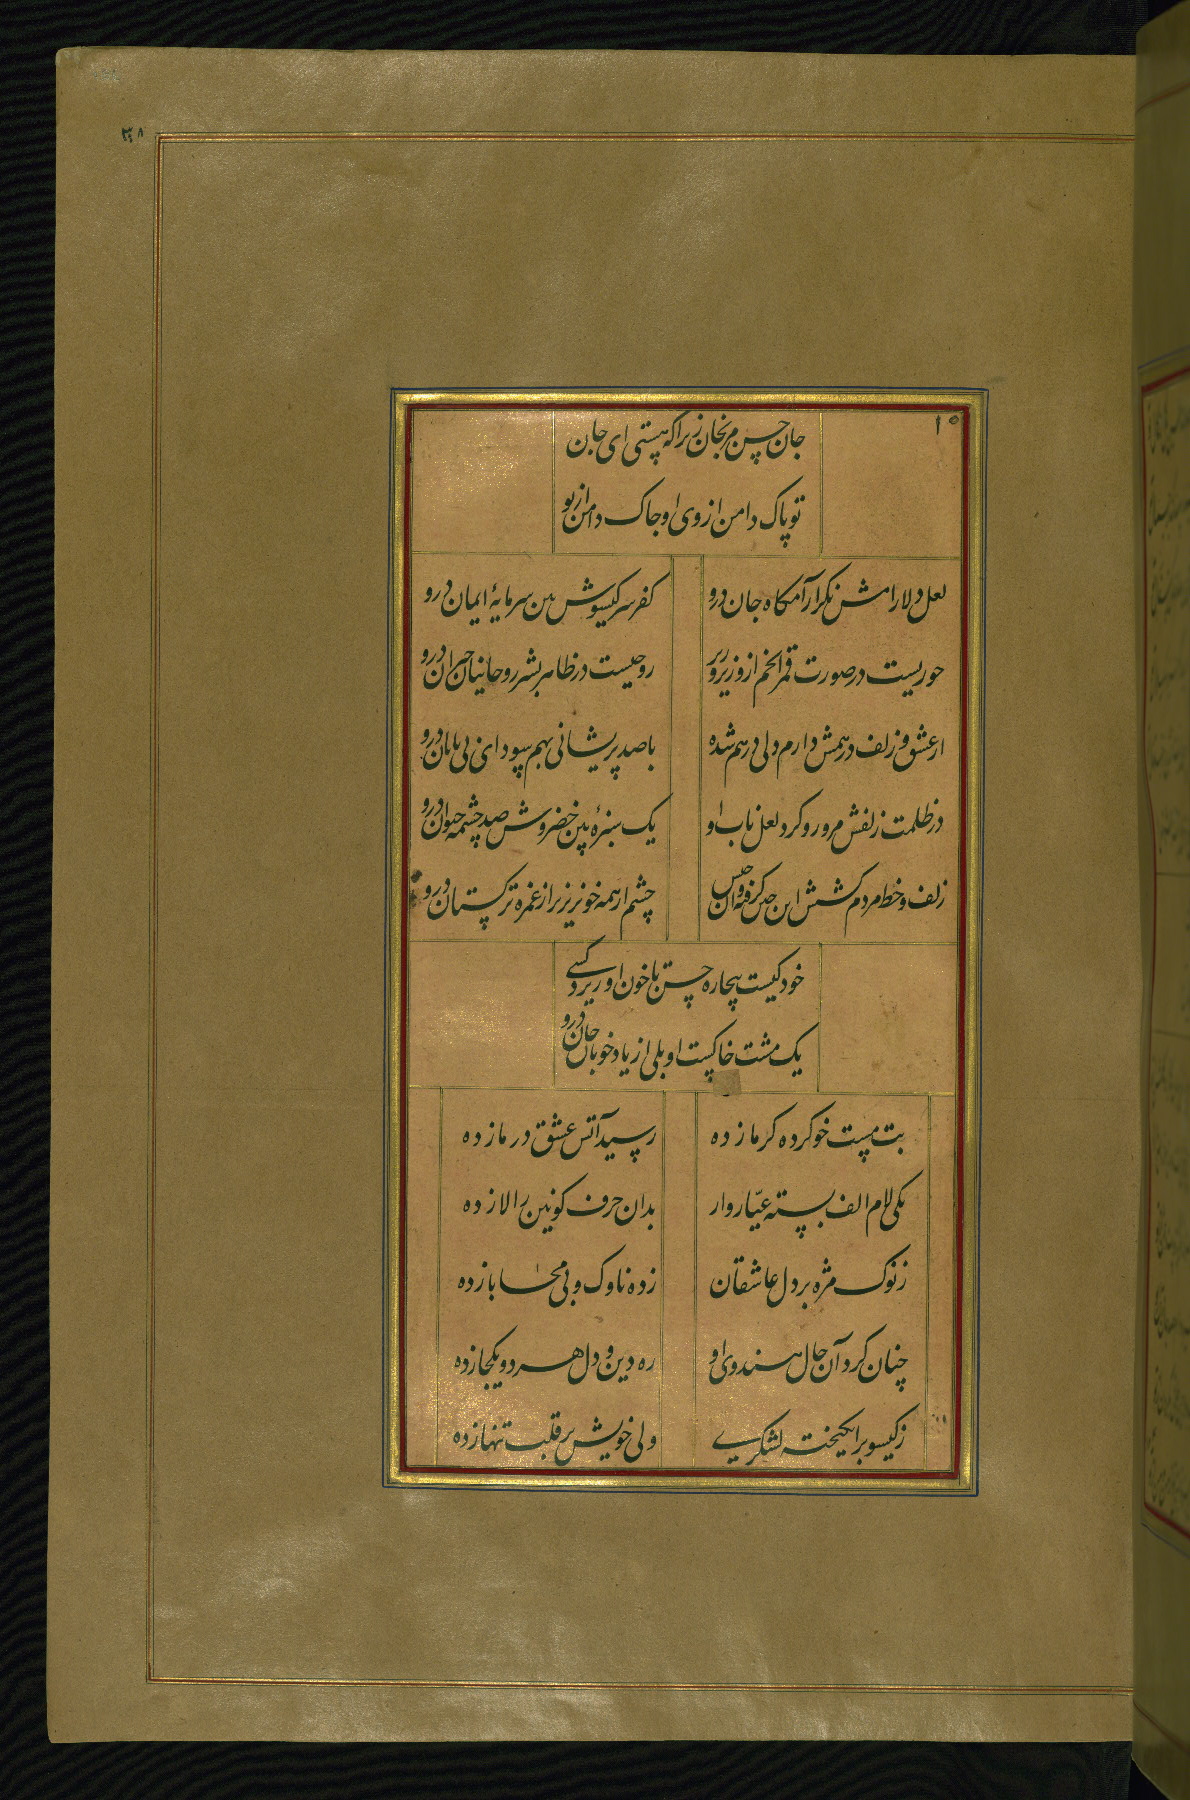 ۳۴۸
جان حسن مرنجان زیرا که هستی ای جان
تو پاک دامن از وی او چاک دامن از تو
لعل دلارامش نگر آرامگاه جان درو کفر سر گیسوش بین سرمایهٔ ایمان درو
حوریست در صورت قمر انجم ازو زیر و زبر روحیست در ظاهر بشر روحانیان حیران درو
از عشق و زلف درهمش دارم دلی درهم شده با صد پریشانی بهم سودای بی پایان درو
در ظلمت زلفش مرو رو کرد لعل ناب او یک سبزه بین خضروش صد چشمه حیوان درو
زلف و خط مردم کشش این چین گرفته آن حبش چشم از همه خونریزتر از غمزه ترکستان درو
خود کیست بیچاره حسن تا خون او ریزد کسی
یک مشت خاکست او بلی از یاد خوبان جان درو
بت مست خو کرده گرما زده رسید آتش عشق در ما زده
یکی لام الف بسته عیّاروار بدان حرف کونین را لا زده
ز نوک مژه بر دل عاشقان زده ناوک و بی محابا زده
چنان کرد آن خال هندوی او ره دین و دل هر دو یکجا زده
ز گیسو برانگیخته لشکری ولی خویش بر قلب تنها زده